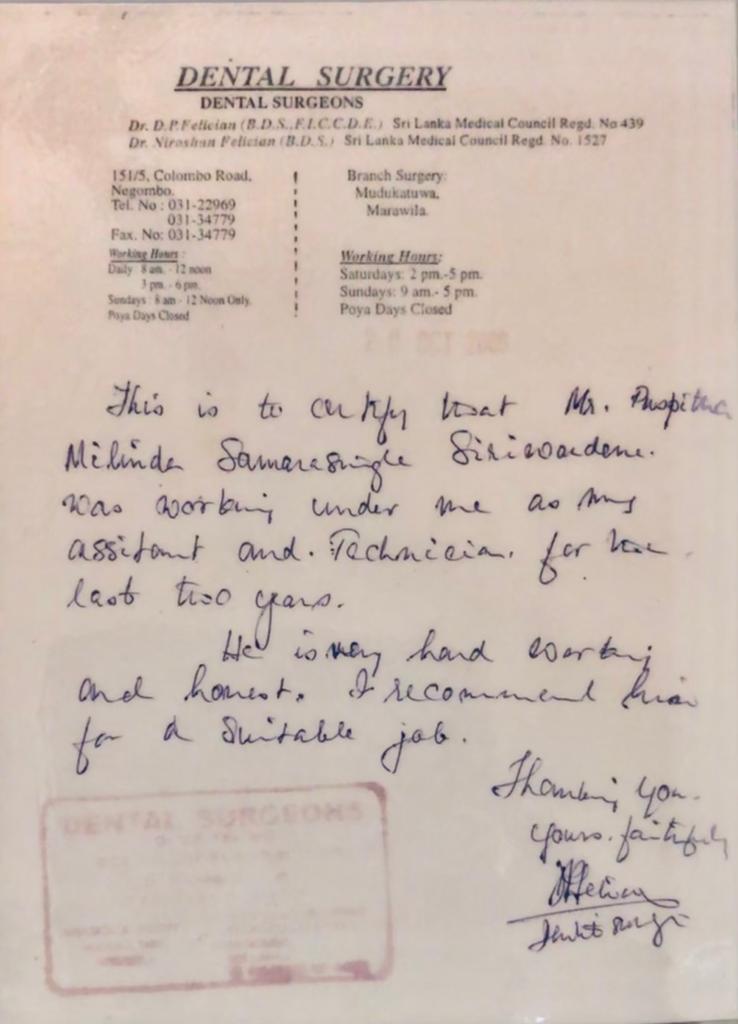 DENTAL SURGERY
DENTAL SURGEONS
Dr. D.P.Felician (B.D.S.,F.I.C.C.D.E.) Sri Lanka Medical Council Regd. No 439
Dr. Niroshan Felician (B.D.S.) Sri Lanka Medical Council Regd. No. 1527
151/5, Colombo Road,
Negombo.
Tel. No : 031-22969
031-34779
Fax. No: 031-34779
Working Hours :
Daily 8 am. - 12 noon
3 pm. - 6 pm.
Sundays : 8 am - 12 Noon Only.
Poya Days Closed
Branch Surgery:
Mudukatuwa,
Marawila.
Working Hours:
Saturdays: 2 pm.-5 pm.
Sundays: 9 am.- 5 pm.
Poya Days Closed
OCT
This is to certify that Mr. Puspitha
Milinda Samarasingle Siriwardene.
was working under me as my
assitant and. Technician. for the
last two years.
He is very hard working
and honest. I recommend him
for a Suitable job.
Thanking you.
yours. faithfully
DENTAL SURGEONS